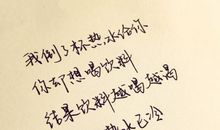 我倒了杯热水给你
你却想喝饮料
结果饮料越喝越渴
热水已冷